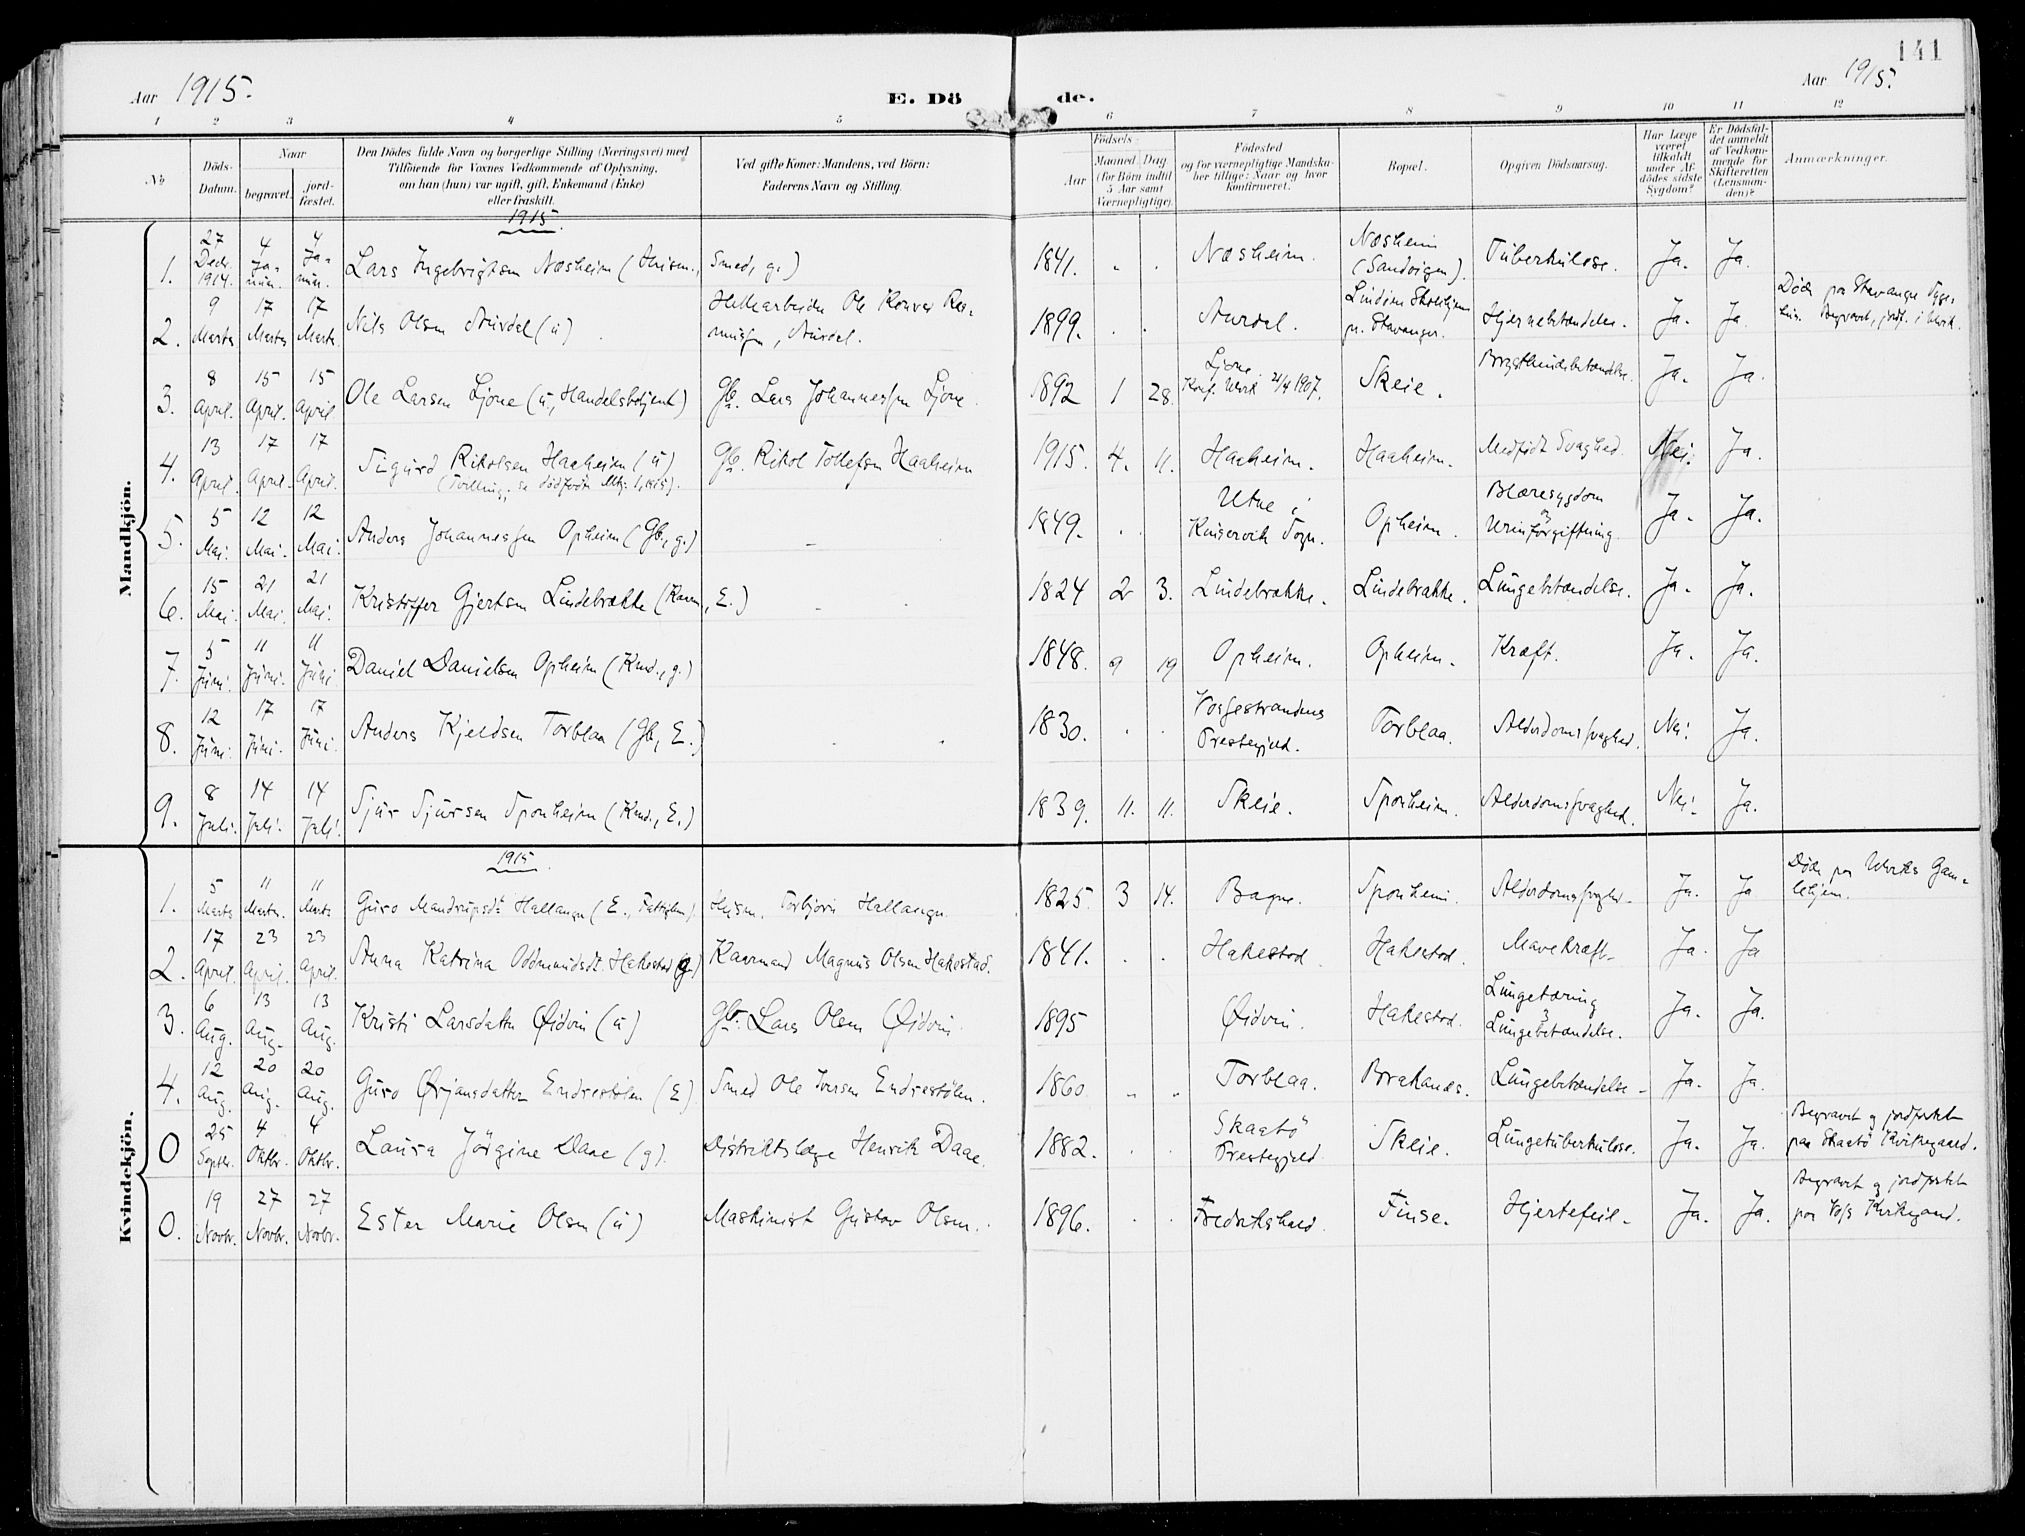 141
Aar 1915.
E. Dö
de.
Aar 1915.
1 2 3 4 5 6 7 8 9 10 11 12
No
Döds-
Datum.
Naar
begravet.
jord-
fæstet.
Den Dödes fulde Navn og borgerlige Stilling (Næringsvei) med
Tilföiende for Voxnes Vedkommende af Oplysning,
om han (hun) var ugift, gift, Enkemand (Enke)
eller fraskilt.
Ved gifte Koner: Mandens, ved Börn:
Faderens Navn og Stilling.
Aar
Födsels-
Maaned Dag
(for Börn indtil
5 Aar samt
Værnepligtige).
Födested
og for værnepligtige Mandska-
ber tillige: Naar og hvor
konfirmeret.
Bopæl.
Opgiven Dödsaarsag.
Har Læge
været
tilkaldt
under Af-
dödes sidste
Sygdom?
Er Dödsfal-
det anmeldt
af Vedkom-
mende for
Skifteretten
(Lensman-
den)?
Anmærkninger.
Mandkjön.
1915.
1. 27 Decbr. 1914. 4 Ja-nuar. 4 Ja-nuar. Lars Ingebrigtsen Næsheim (Husm., Smed, g.) 1841. " . Næsheim. Næsheim (Sandvigen). Tuberkulose. Ja. Ja.
2. 9 Marts 17 Marts 17 Marts. Nils Olsen Aurdal (u) Ole Aurdal. 1899. . . Aurdal. Stavanger. Hjernebetændelse. Ja. Ja. Død paa Stavanger Begravet, jordf. i
3. 8 April. 15 April. 15 April Ole Larsen Ljone (u., Handelsbetjent) Gb. Lars Johannessen Ljone. 1892 1 28. Ljone. Konf. 21/4 1907. Skeie. Brysthindebetændelse. Ja. Ja.
4. 13 April. 17 April. 17 April. Sigurd Rikolsen Haaheim (u) (Tvilling; se dødfødte 1, 1915). Gb. Rikol Tollefsen Haaheim 1915. 4. 11. Haaheim. Haaheim. Medfødt Svaghed. Nei. Ja.
5. 5 Mai. 12 Mai. 12 Mai. Anders Johannessen Opheim (Gb., g.) - 1849. . . Utne i Kinservik Sogn. Opheim. Blæresygdom og Urinforgiftning. Ja. Ja.
6. 15 Mai. 21 Mai. 21 Mai. Kristoffer Gjertsen Lindebrække (Kaarm., E.) 1824 2 3. Lindebrække. Lindebrække. Lungebetændelse. Ja. Ja.
7. 5 Juni. 11 Juni. 11 Juni Daniel Danielsen Opheim (Kmd., g.) 1848. 9 19 Opheim. Opheim. Kræft. Ja. Ja.
8. 12 Juni. 17 Juni. 17 Juni. Anders Kjeldsen Torblaa (Gb., E.) 1830. . . Vossestrandens Prestegjeld. Torblaa. Alderdomssvaghed. Nei. Ja.
9. 8 Juli. 14 Juli. 14 Juli. Sjur Sjursen Sponheim (Kmd., E.) 1839. 11. 11. Skeie. Sponheim. Alderdomssvaghed. Nei. Ja.
Kvindekjön.
1915.
1. 5 Marts 11 Marts. 11 Marts Guro Mandrupsdt. Hallanger (E., Fattiglem) Husm. Torbjørn Hallanger. 1825. 3 14. Bagne. Sponheim. Alderdomssvaghed. Ja. Ja Død paa Ulviks Gam-lehjem.
2. 17 April. 23 April. 23 April. Anna Katrina Oddmundsdt. Hakestad (g.) Kaarmand Magnus Olsen Hakestad. 1841. . . Hakestad. Hakestad. Mavekræft. Ja. Ja
3. 6 Aug. 13 Aug. 13 Aug. Kristi Larsdatter Øidvin (u) Gbr. Lars Olsen Øidvin. 1895 Øidvin. Hakestad. Lungetæring & Lungebetændelse. Ja. Ja.
4. 12 Aug. 20 Aug. 20 Aug. Guro Ørjansdatter Endrestølen (E) Smed Ole Iversen Endrestølen. 1860 " " Torblaa. Brakanes. Lungebetændelse. Ja. Ja.
0 25 Septbr. 4 Oktbr. 4 Oktbr. Laura Jørgine Daae (g). Distriktslæge Henrik Daae. 1882. . . Skaatø Prestegjeld. Skeie. Lungetuberkulose. Ja. Ja. Begravet og jordfæstet paa Skaatø Kirkegaard.
0. 19 Novbr. 27 Novbr. 27 Novbr. Ester Marie Olsen (u) Maskinist Gustav Olsen. 1896. . . Fredrikshald. Finse. Hjertefeil. Ja. Ja. Begravet og jordfæstet paa Voss Kirkegaard.